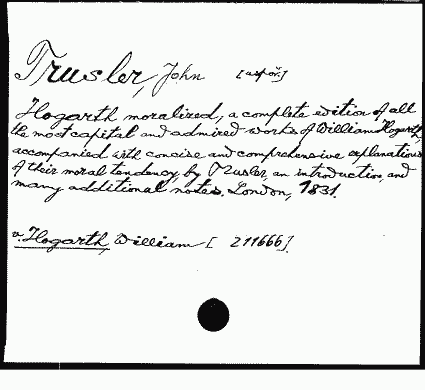 Trusler, John [aspoř.]
Hogarth moralized, a complete edition of all
the most capital and admired works of William Hogarth,
accompanied with concise and comprehensive explanations
of their moral tendency, by Trusler, an introduction, and
many additional notes. London, 1831.
v. Hogarth, William [ 211666].